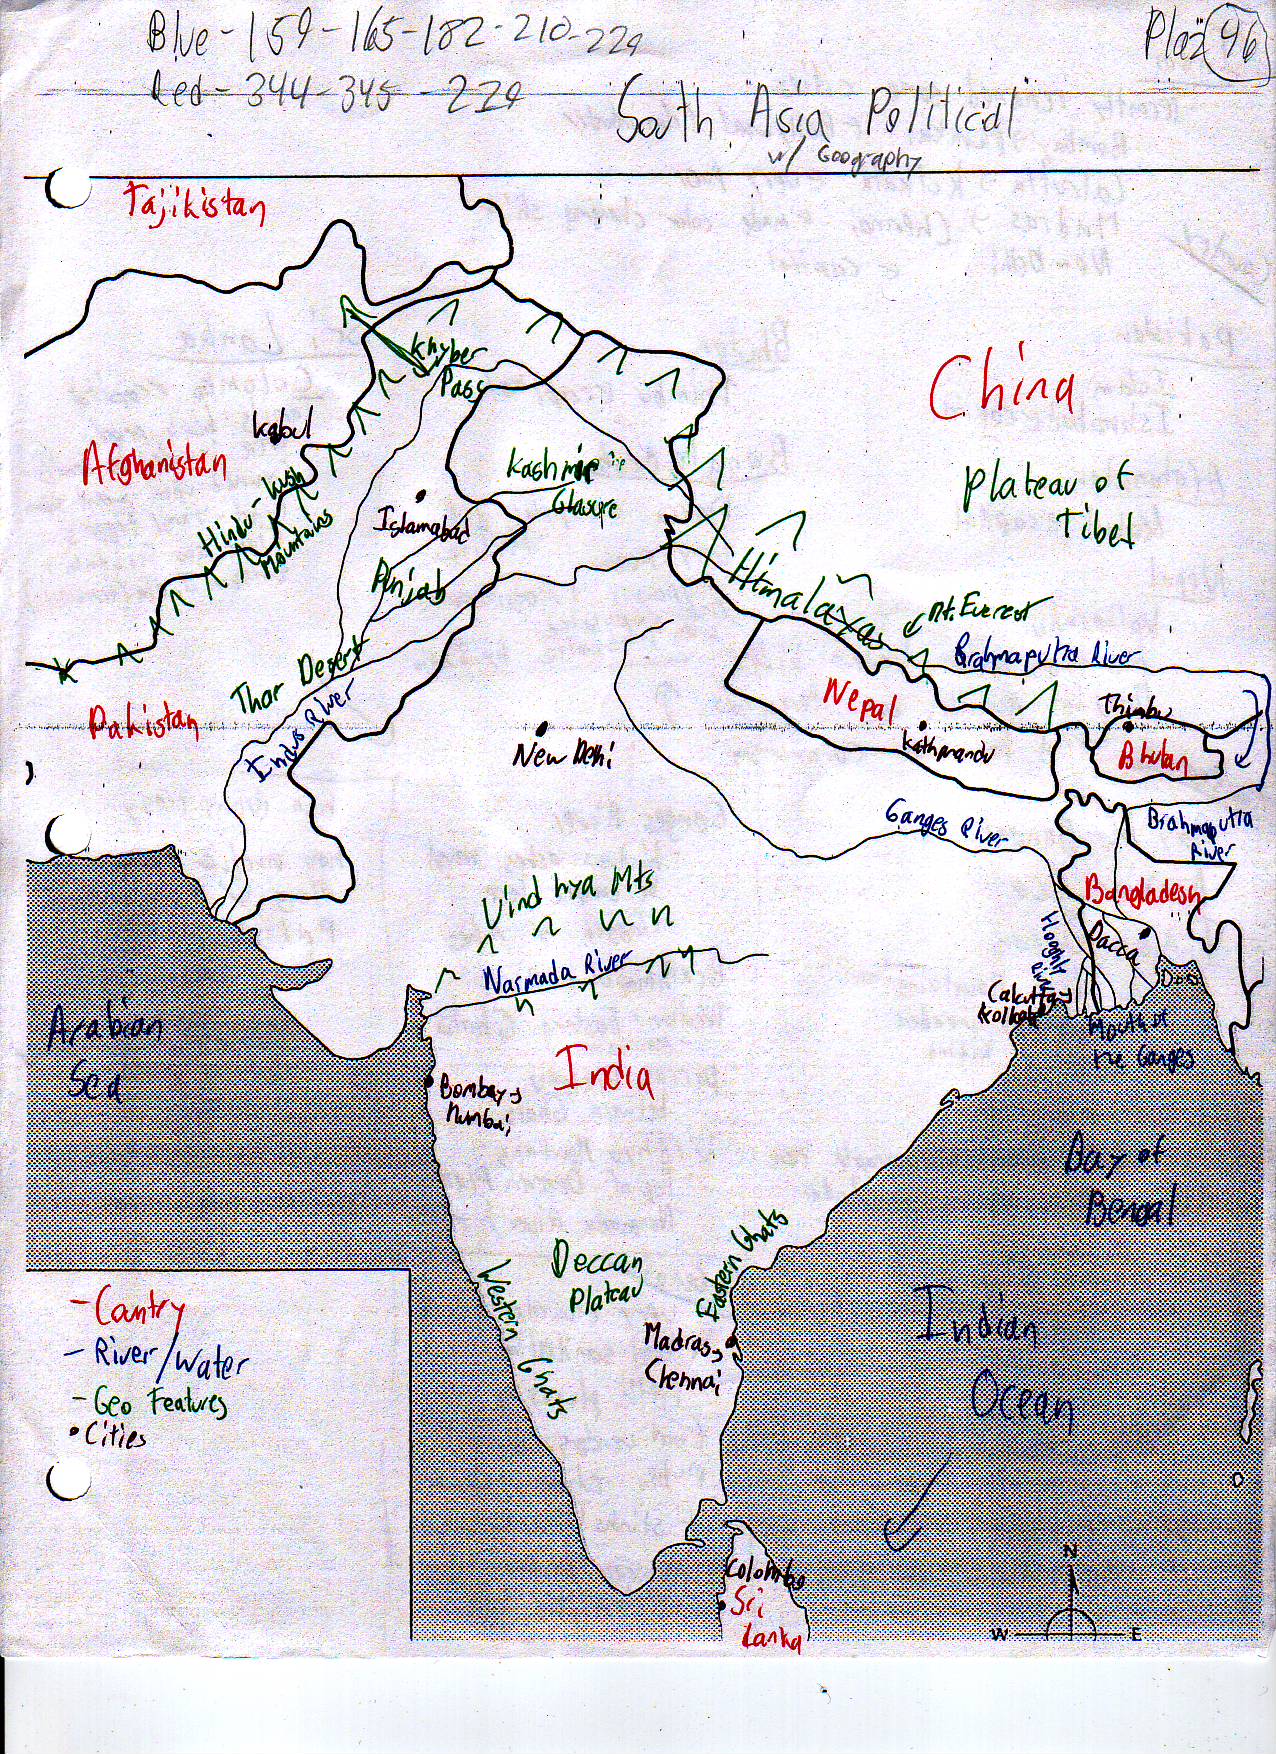 Blue-159-165-182-210-229
Red-344-345-229
Plaz 96
South Asia Political
w/ Geography
Tajikistan
China
Khyber
Pass
Kabul
Afghanistan
Hindu-Kush
Mountains
Kashmir
Islamabad
Punjab
Plateau of
Tibet
Himalayas
Mt. Everest
Brahmaputra River
Thar Desert
Indus River
Pakistan
Nepal
Kathmandu
Thimbu
Bhutan
New Delhi
Ganges River
Brahmaputra
River
Bangladesh
Dacca
Vindhya Mts
Narmada River
Hooghly
River
Calcutta
Kolkata
Mouth of
the Ganges
Arabian
Sea
India
Bombay→
Mumbai
Bay of
Bengal
Deccan
Plateau
Western
Ghats
Eastern Ghats
Madras→
Chennai
Indian
Ocean
-Cantry
-River/Water
-Geo Features
•Cities
Colombo
Sri
Lanka
N
W E